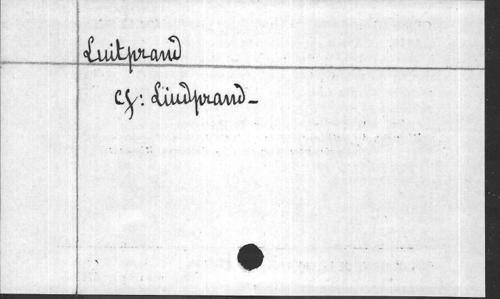 Luitprand
cf: Liudprand-